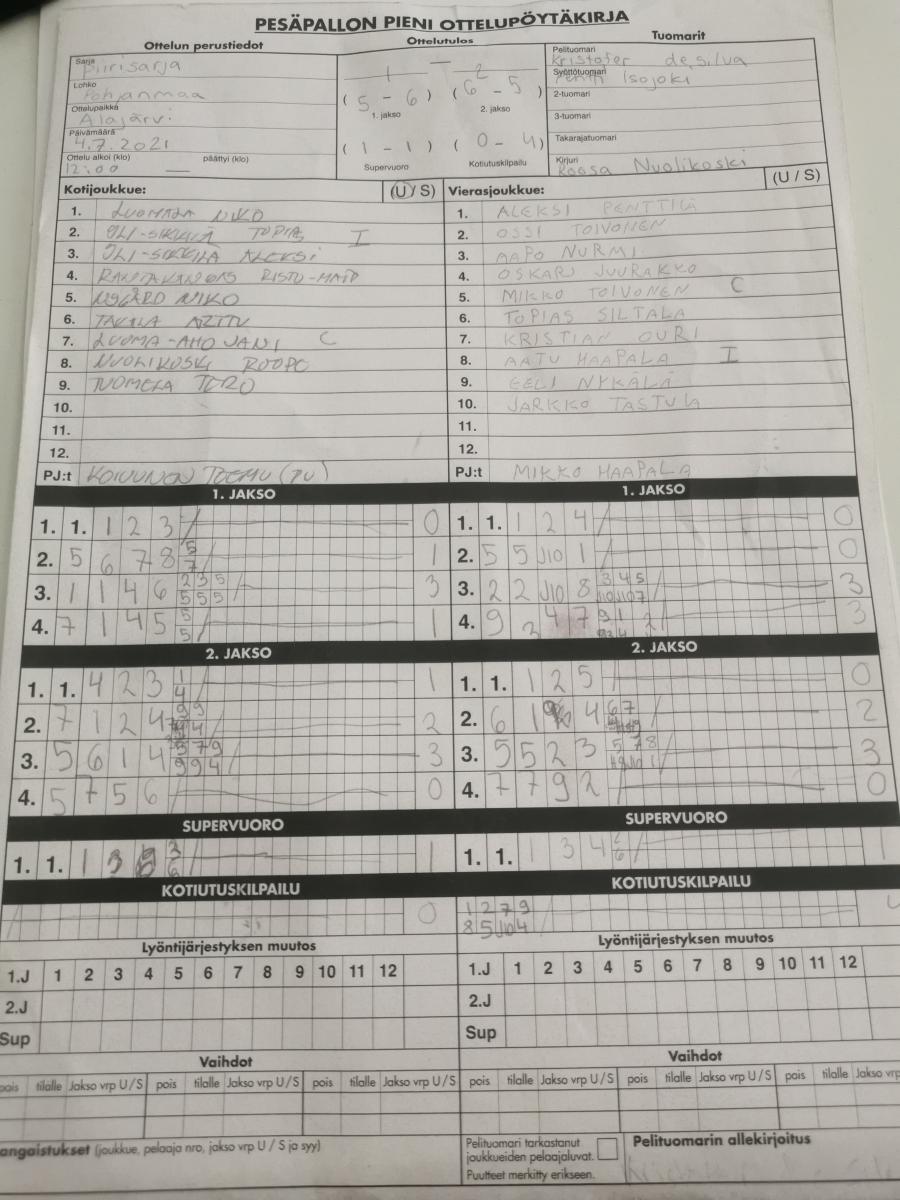 PESÄPALLON PIENI OTTELUPÖYTÄKIRJA
Ottelun perustiedot
Ottelutulos
Tuomarit
Sarja
Piirisarja
Lohko
Pohjanmaa
Ottelupaikka
Alajärvi
Päivämäärä
4.7.2021
Ottelu alkoi (klo) päättyi (klo)
12:00 —
1 — 2
(5 - 6) (6 - 5)
1. jakso 2. jakso
(1 - 1) (0 - 4)
Supervuoro Kotiutuskilpailu
Pelituomari
Kristofer desilva
Syöttötuomari
Isojoki
2-tuomari
3-tuomari
Takarajatuomari
Kirjuri
Roosa Nuolikoski
Kotijoukkue: (U / S)
1. LUOMALA NIKO
2. YLI-SIKKILÄ TOPIAS I
3. YLI-SIKKILÄ ALEKSI
4. RANTAKANGAS RISTO-MATTI
5. NYGÅRD NIKO
6. TAKALA ARTTU
7. LUOMA-AHO JANI C
8. NUOLIKOSKI ROOPE
9. TUOMELA TERO
10.
11.
12.
PJ:t KOIVUNEN TEEMU (PU)
Vierasjoukkue: (U / S)
1. ALEKSI PENTTILÄ
2. OSSI TOIVONEN
3. AAPO NURMI
4. OSKARI JUURAKKO
5. MIKKO TOIVONEN C
6. TOPIAS SILTALA
7. KRISTIAN OURI
8. AATU HAAPALA I
9. EELI NYKÄLÄ
10. JARKKO TASTULA
11.
12.
PJ:t MIKKO HAAPALA
1. JAKSO
1. 1. 1 2 3 / 0
2. 5 6 7 8 5 7 / 1
3. 1 1 4 6 2 3 5 5 5 5 / 3
4. 7 1 4 5 5 5 / 1
1. JAKSO
1. 1. 1 2 4 / 0
2. 5 5 J10 1 / 0
3. 2 2 J10 8 3 4 5 / 3
4. 9 3 4 7 9 1 2 / 3
2. JAKSO
1. 1. 4 2 3 1 4 / 1
2. 7 1 2 4 / 2
3. 5 6 1 4 5 7 9 9 9 4 / 3
4. 5 7 5 6 / 0
2. JAKSO
1. 1. 1 2 5 / 0
2. 6 1 4 6 7 / 2
3. 5 5 2 3 5 7 8 / 3
4. 7 7 9 2 / 0
SUPERVUORO
1. 1. 1 3 / 1
SUPERVUORO
1. 1. 1 3 4 2 6 / 1
KOTIUTUSKILPAILU
/ 0
KOTIUTUSKILPAILU
1 2 7 9 / 4
8 5 J10 4
Lyöntijärjestyksen muutos
1.J 1 2 3 4 5 6 7 8 9 10 11 12
2.J
Sup
Lyöntijärjestyksen muutos
1.J 1 2 3 4 5 6 7 8 9 10 11 12
2.J
Sup
Vaihdot
pois tilalle Jakso vrp U / S pois tilalle Jakso vrp U / S pois tilalle Jakso vrp U / S
Vaihdot
pois tilalle Jakso vrp U / S pois tilalle Jakso vrp U / S pois tilalle Jakso vrp
angaistukset (joukkue, pelaaja nro, jakso vrp U / S ja syy)
Pelituomari tarkastanut
joukkueiden pelaajaluvat.
Puutteet merkitty erikseen.
Pelituomarin allekirjoitus